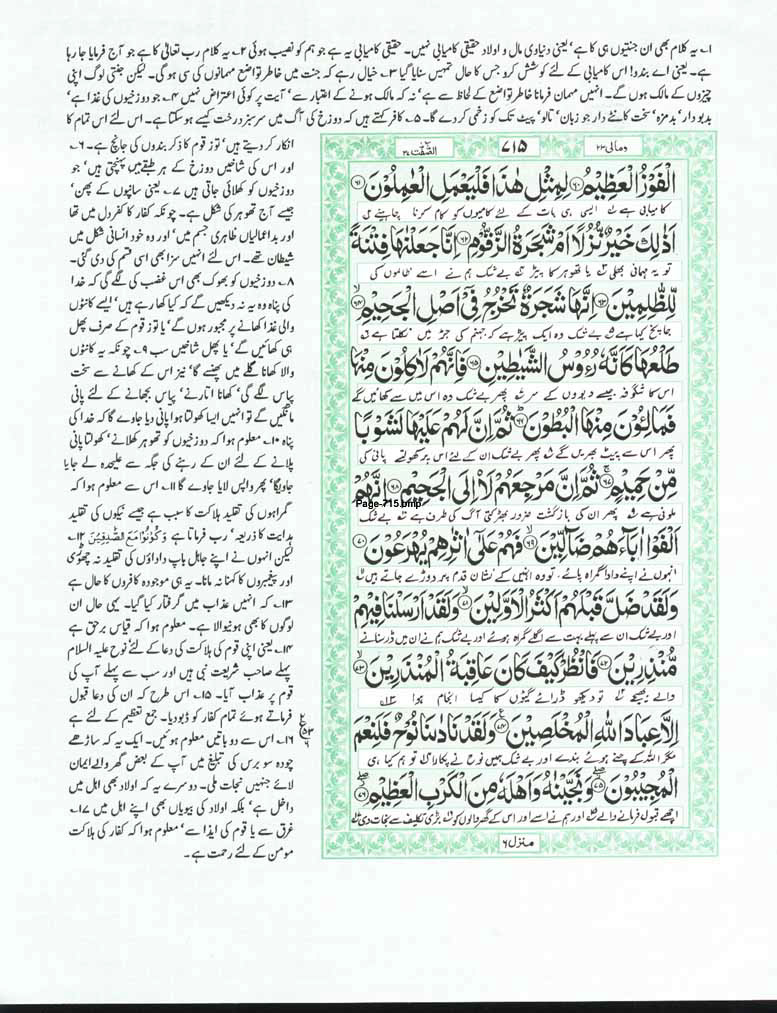 ۱۔ یہ کلام بھی ان جنتیوں ہی کا ہے، یعنی دنیاوی مال و اولاد حقیقی کامیابی نہیں۔ حقیقی کامیابی یہ ہے جو ہم کو نصیب ہوئی ۲۔ یہ کلام رب تعالیٰ کا ہے جو آج فرمایا جا رہا
ہے۔ یعنی اے بندو! اس کامیابی کے لئے کوشش کرو جس کا حال تمہیں سنایا گیا ۳۔ خیال رہے کہ جنت میں خاطر تواضع مہمانوں کی سی ہو گی۔ لیکن جنتی لوگ اپنی
چیزوں کے مالک ہوں گے۔ انہیں مہمان فرمانا خاطر تواضع کے لحاظ سے ہے، نہ کہ مالک ہونے کے اعتبار سے، آیت پر کوئی اعتراض نہیں ۴۔ جو دوزخیوں کی غذا ہے،
بدبودار، بدمزہ، سخت کانٹے دار جو زبان، تالو، پیٹ تک کو زخمی کر دے گا۔ ۵۔ کافر کہتے ہیں کہ دوزخ کی آگ میں سرسبز درخت کیسے ہو سکتا ہے۔ اس لئے اس تمام کا
انکار کر دیتے ہیں، تو زقوم کا ذکر بندوں کی جانچ ہے۔ ۶۔
اور اس کی شاخیں دوزخ کے ہر طبقے میں پہنچتی ہیں، جو
دوزخیوں کو کھلائی جاتی ہیں ۷۔ یعنی سانپوں کے پھن،
جیسے آج تھوہر کی شکل ہے۔ چونکہ کفار کا کفر دل میں تھا
اور بداعمالیاں ظاہری جسم میں، اور وہ خود انسانی شکل میں
شیطان تھے۔ اس لئے انہیں سزا بھی اسی قسم کی دی گئی۔
۸۔ دوزخیوں کو بھوک بھی اس غضب کی لگے گی کہ خدا
کی پناہ وہ یہ نہ دیکھیں گے کہ کیا کھا رہے ہیں، ایسے کانٹوں
والی غذا کھانے پر مجبور ہوں گے، یا تو زقوم کے صرف پھل
ہی کھائیں گے، یا پھل شاخیں سب ۹۔ چونکہ یہ کانٹوں
والا کھانا گلے میں پھنسے گا، نیز اس کے کھانے سے سخت
پیاس لگے گی، کھانا اتارنے، پیاس بجھانے کے لئے پانی
مانگیں گے تو انہیں ایسا کھولتا ہوا پانی دیا جاوے گا کہ خدا کی
پناہ ۱۰۔ معلوم ہوا کہ دوزخیوں کو تھوہر کھلانے، کھولتا پانی
پلانے کے لئے ان کے رہنے کی جگہ سے علیحدہ لے جایا
جاویگا، پھر واپس لایا جاوے گا ۱۱۔ اس سے معلوم ہوا کہ
گمراہوں کی تقلید ہلاکت کا سبب ہے جیسے نیکوں کی تقلید
ہدایت کا ذریعہ، رب فرماتا ہے وَكُوْنُوْا مَعَ الصّٰدِقِيْنَ ۱۲۔
لیکن انہوں نے اپنے جاہل باپ داداؤں کی تقلید نہ چھوڑی
اور پیغمبروں کا کہنا نہ مانا۔ یہ ہی موجودہ کافروں کا حال ہے
۱۳۔ کہ انہیں عذاب میں گرفتار کیا گیا۔ یہی حال ان
لوگوں کا بھی ہونیوالا ہے۔ معلوم ہوا کہ قیاس برحق ہے
۱۴۔ یعنی اپنی قوم کی ہلاکت کی دعا کے لئے نوح علیہ السلام
پہلے صاحب شریعت نبی ہیں اور سب سے پہلے آپ کی
قوم پر عذاب آیا۔ ۱۵۔ اس طرح کہ ان کی دعا قبول
فرماتے ہوئے تمام کفار کو ڈبو دیا۔ جمع تعظیم کے لئے ہے
۱۶۔ اس سے دو باتیں معلوم ہوئیں۔ ایک یہ کہ ساڑھے
چودہ سو برس کی تبلیغ میں آپ کے بعض گھر والے ایمان
لائے جنہیں نجات ملی۔ دوسرے یہ کہ اولاد بھی اہل میں
داخل ہے، بلکہ اولاد کی بیویاں بھی اپنے اہل میں ۱۷۔
غرق سے یا قوم کی ایذا سے، معلوم ہوا کہ کفار کی ہلاکت
مومن کے لئے رحمت ہے۔
ومالی ۲۳ ۷۱۵ الصّٰفّٰت ۳۷
الْفَوْزُ الْعَظِيْمُ ﴿۶۰﴾ لِمِثْلِ هٰذَا فَلْيَعْمَلِ الْعٰمِلُوْنَ ﴿۶۱﴾
کامیابی ہے ایسی ہی بات کے لئے کامیوں کو کام کرنا چاہیئے
اَذٰلِكَ خَيْرٌ نُّزُلًا اَمْ شَجَرَةُ الزَّقُّوْمِ ﴿۶۲﴾ اِنَّا جَعَلْنٰهَا فِتْنَةً
تو یہ مہمانی بھلی یا تھوہر کا پیڑ بے شک ہم نے اسے ظالموں کی
لِّلظّٰلِمِيْنَ ﴿۶۳﴾ اِنَّهَا شَجَرَةٌ تَخْرُجُ فِيْٓ اَصْلِ الْجَحِيْمِ ﴿۶۴﴾
جانچ کیا ہے بے شک وہ ایک پیڑ ہے کہ جہنم کی جڑ میں نکلتا ہے
طَلْعُهَا كَاَنَّهٗ رُءُوْسُ الشَّيٰطِيْنِ ﴿۶۵﴾ فَاِنَّهُمْ لَاٰكِلُوْنَ مِنْهَا
اس کا شگوفہ جیسے دیووں کے سر پھر بے شک وہ اس میں سے کھائیں گے
فَمَالِـُٔوْنَ مِنْهَا الْبُطُوْنَ ﴿۶۶﴾ ثُمَّ اِنَّ لَهُمْ عَلَيْهَا لَشَوْبًا
پھر اس سے پیٹ بھریں گے پھر بے شک ان کے لئے اس پر کھولتے پانی کی
مِّنْ حَمِيْمٍ ﴿۶۷﴾ ثُمَّ اِنَّ مَرْجِعَهُمْ لَا۟اِلَى الْجَحِيْمِ ﴿۶۸﴾ اِنَّهُمْ
Page-715.bmp
ملونی ہے پھر ان کی بازگشت ضرور بھڑکتی آگ کی طرف ہے بے شک
اَلْفَوْا اٰبَآءَهُمْ ضَآلِّيْنَ ﴿۶۹﴾ فَهُمْ عَلٰٓى اٰثٰرِهِمْ يُهْرَعُوْنَ ﴿۷۰﴾
انہوں نے اپنے دادا گمراہ پائے، تو وہ انہیں کے نشان قدم پر دوڑے جاتے ہیں
وَلَقَدْ ضَلَّ قَبْلَهُمْ اَكْثَرُ الْاَوَّلِيْنَ ﴿۷۱﴾ وَلَقَدْ اَرْسَلْنَا فِيْهِمْ
اور بے شک ان سے پہلے بہت سے اگلے گمراہ ہوئے اور بے شک ہم نے ان میں ڈر سنانے
مُّنْذِرِيْنَ ﴿۷۲﴾ فَانْظُرْ كَيْفَ كَانَ عَاقِبَةُ الْمُنْذَرِيْنَ ﴿۷۳﴾
والے بھیجے تو دیکھو ڈرائے گیوں کا کیسا انجام ہوا
اِلَّا عِبَادَ اللّٰهِ الْمُخْلَصِيْنَ ﴿۷۴﴾ وَلَقَدْ نَادٰىنَا نُوْحٌ فَلَنِعْمَ
مگر اللہ کے چنے ہوئے بندے اور بے شک ہمیں نوح نے پکارا تو ہم کیا ہی
الْمُجِيْبُوْنَ ﴿۷۵﴾ وَنَجَّيْنٰهُ وَاَهْلَهٗ مِنَ الْكَرْبِ الْعَظِيْمِ ﴿۷۶﴾
اچھے قبول فرمانے والے اور ہم نے اسے اور اس کے گھر والوں کو بڑی تکلیف سے نجات دی
منزل ۶